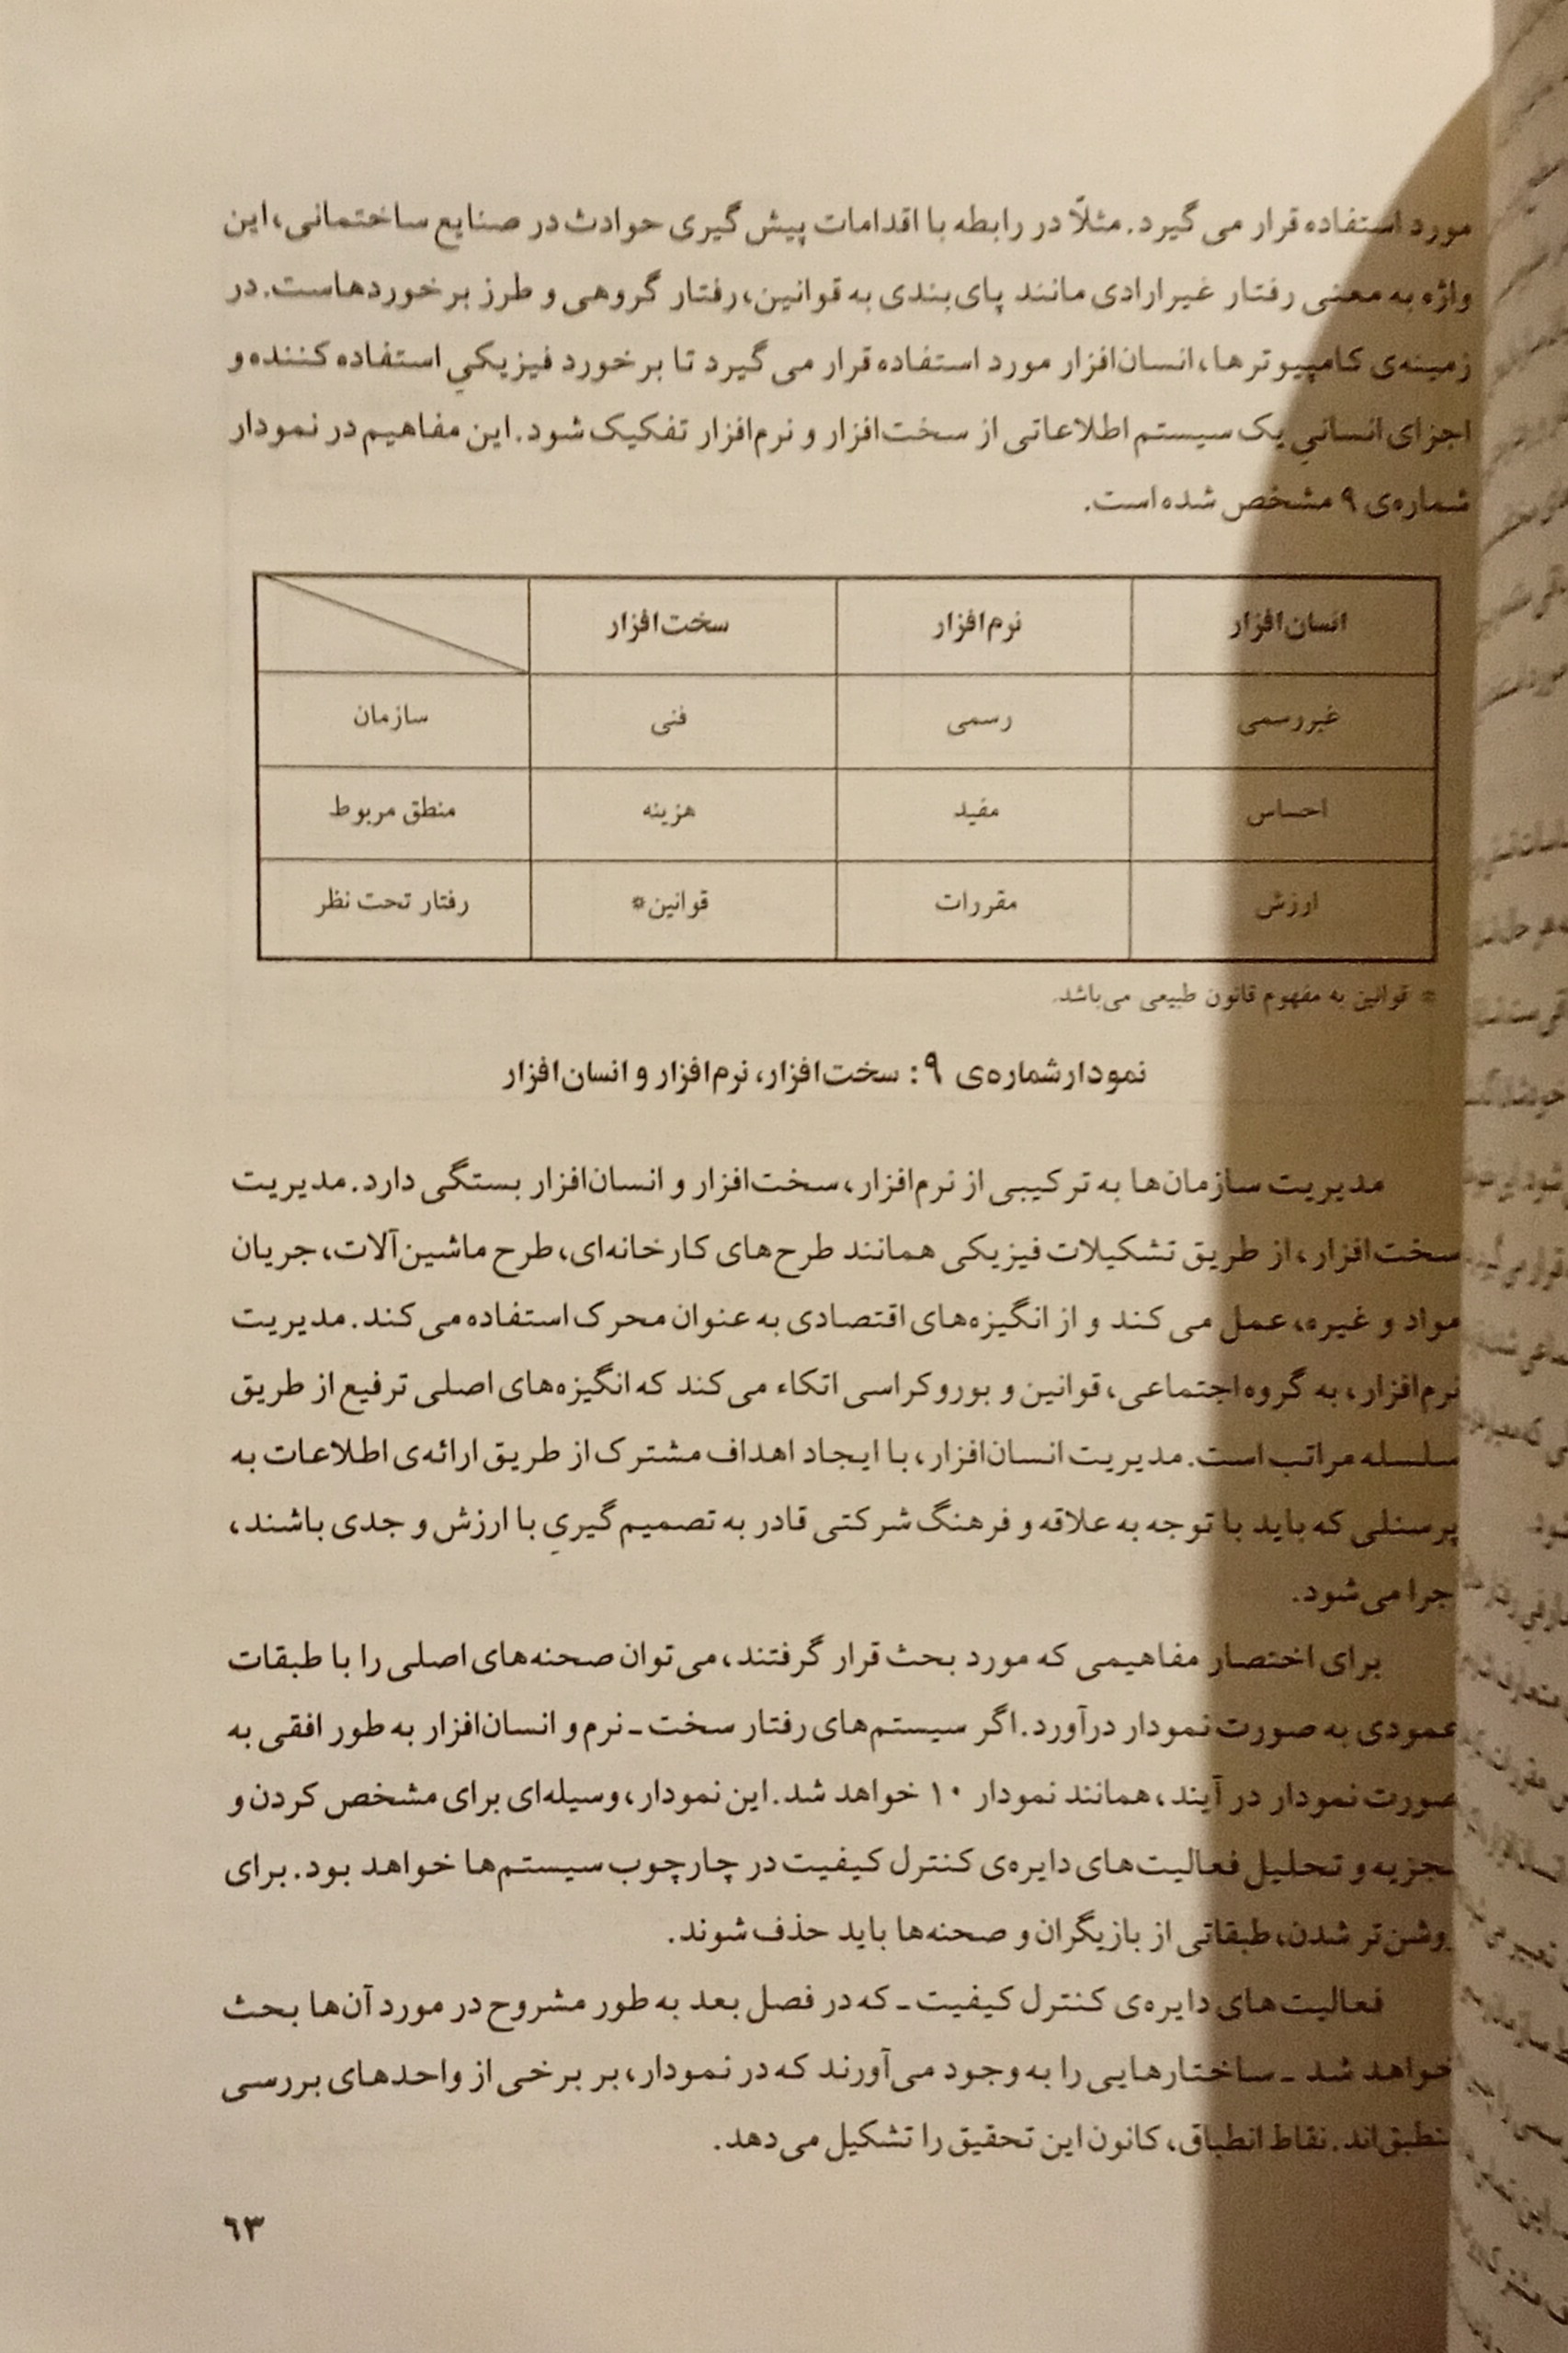 مورد استفاده قرار می گیرد. مثلاً در رابطه با اقدامات پیش گیری حوادث در صنایع ساختمانی، این
واژه به معنی رفتار غیرارادی مانند پای‌بندی به قوانین، رفتار گروهی و طرز برخوردهاست. در
زمینه‌ی کامپیوترها، انسان‌افزار مورد استفاده قرار می گیرد تا برخورد فیزیکيِ استفاده کننده و
اجزای انسانيِ یک سیستم اطلاعاتی از سخت‌افزار و نرم‌افزار تفکیک شود. این مفاهیم در نمودار
شماره‌ی ۹ مشخص شده است.
انسان‌افزار نرم‌افزار سخت‌افزار
غیررسمی رسمی فنی سازمان
احساس مفید هزینه منطق مربوط
ارزش مقررات قوانین* رفتار تحت نظر
* قوانین به مفهوم قانون طبیعی می‌باشد.
نمودار شماره‌ی ۹: سخت‌افزار، نرم‌افزار و انسان‌افزار
مدیریت سازمان‌ها به ترکیبی از نرم‌افزار، سخت‌افزار و انسان‌افزار بستگی دارد. مدیریت
سخت‌افزار، از طریق تشکیلات فیزیکی همانند طرح‌های کارخانه‌ای، طرح ماشین‌آلات، جریان
مواد و غیره، عمل می کند و از انگیزه‌های اقتصادی به عنوان محرک استفاده می کند. مدیریت
نرم‌افزار، به گروه اجتماعی، قوانین و بوروکراسی اتکاء می‌کند که انگیزه‌های اصلی ترفیع از طریق
سلسله مراتب است. مدیریت انسان‌افزار، با ایجاد اهداف مشترک از طریق ارائه‌ی اطلاعات به
پرسنلی که باید با توجه به علاقه و فرهنگ شرکتی قادر به تصمیم گیريِ با ارزش و جدی باشند،
جرا می‌شود.
برای اختصار مفاهیمی که مورد بحث قرار گرفتند، می‌توان صحنه‌های اصلی را با طبقات
عمودی به صورت نمودار درآورد. اگر سیستم‌های رفتار سخت ـ نرم و انسان‌افزار به طور افقی به
صورت نمودار در آیند، همانند نمودار ۱۰ خواهد شد. این نمودار، وسیله‌ای برای مشخص کردن و
جزیه و تحلیل فعالیت‌های دایره‌ی کنترل کیفیت در چارچوب سیستم‌ها خواهد بود. برای
وشن‌تر شدن، طبقاتی از بازیگران و صحنه‌ها باید حذف شوند.
فعالیت‌های دایره‌ی کنترل کیفیت ـ که در فصل بعد به طور مشروح در مورد آن‌ها بحث
خواهد شد ـ ساختارهایی را به وجود می‌آورند که در نمودار، بر برخی از واحدهای بررسی
نطبق‌اند. نقاط انطباق، کانون این تحقیق را تشکیل می‌دهد.
۶۳